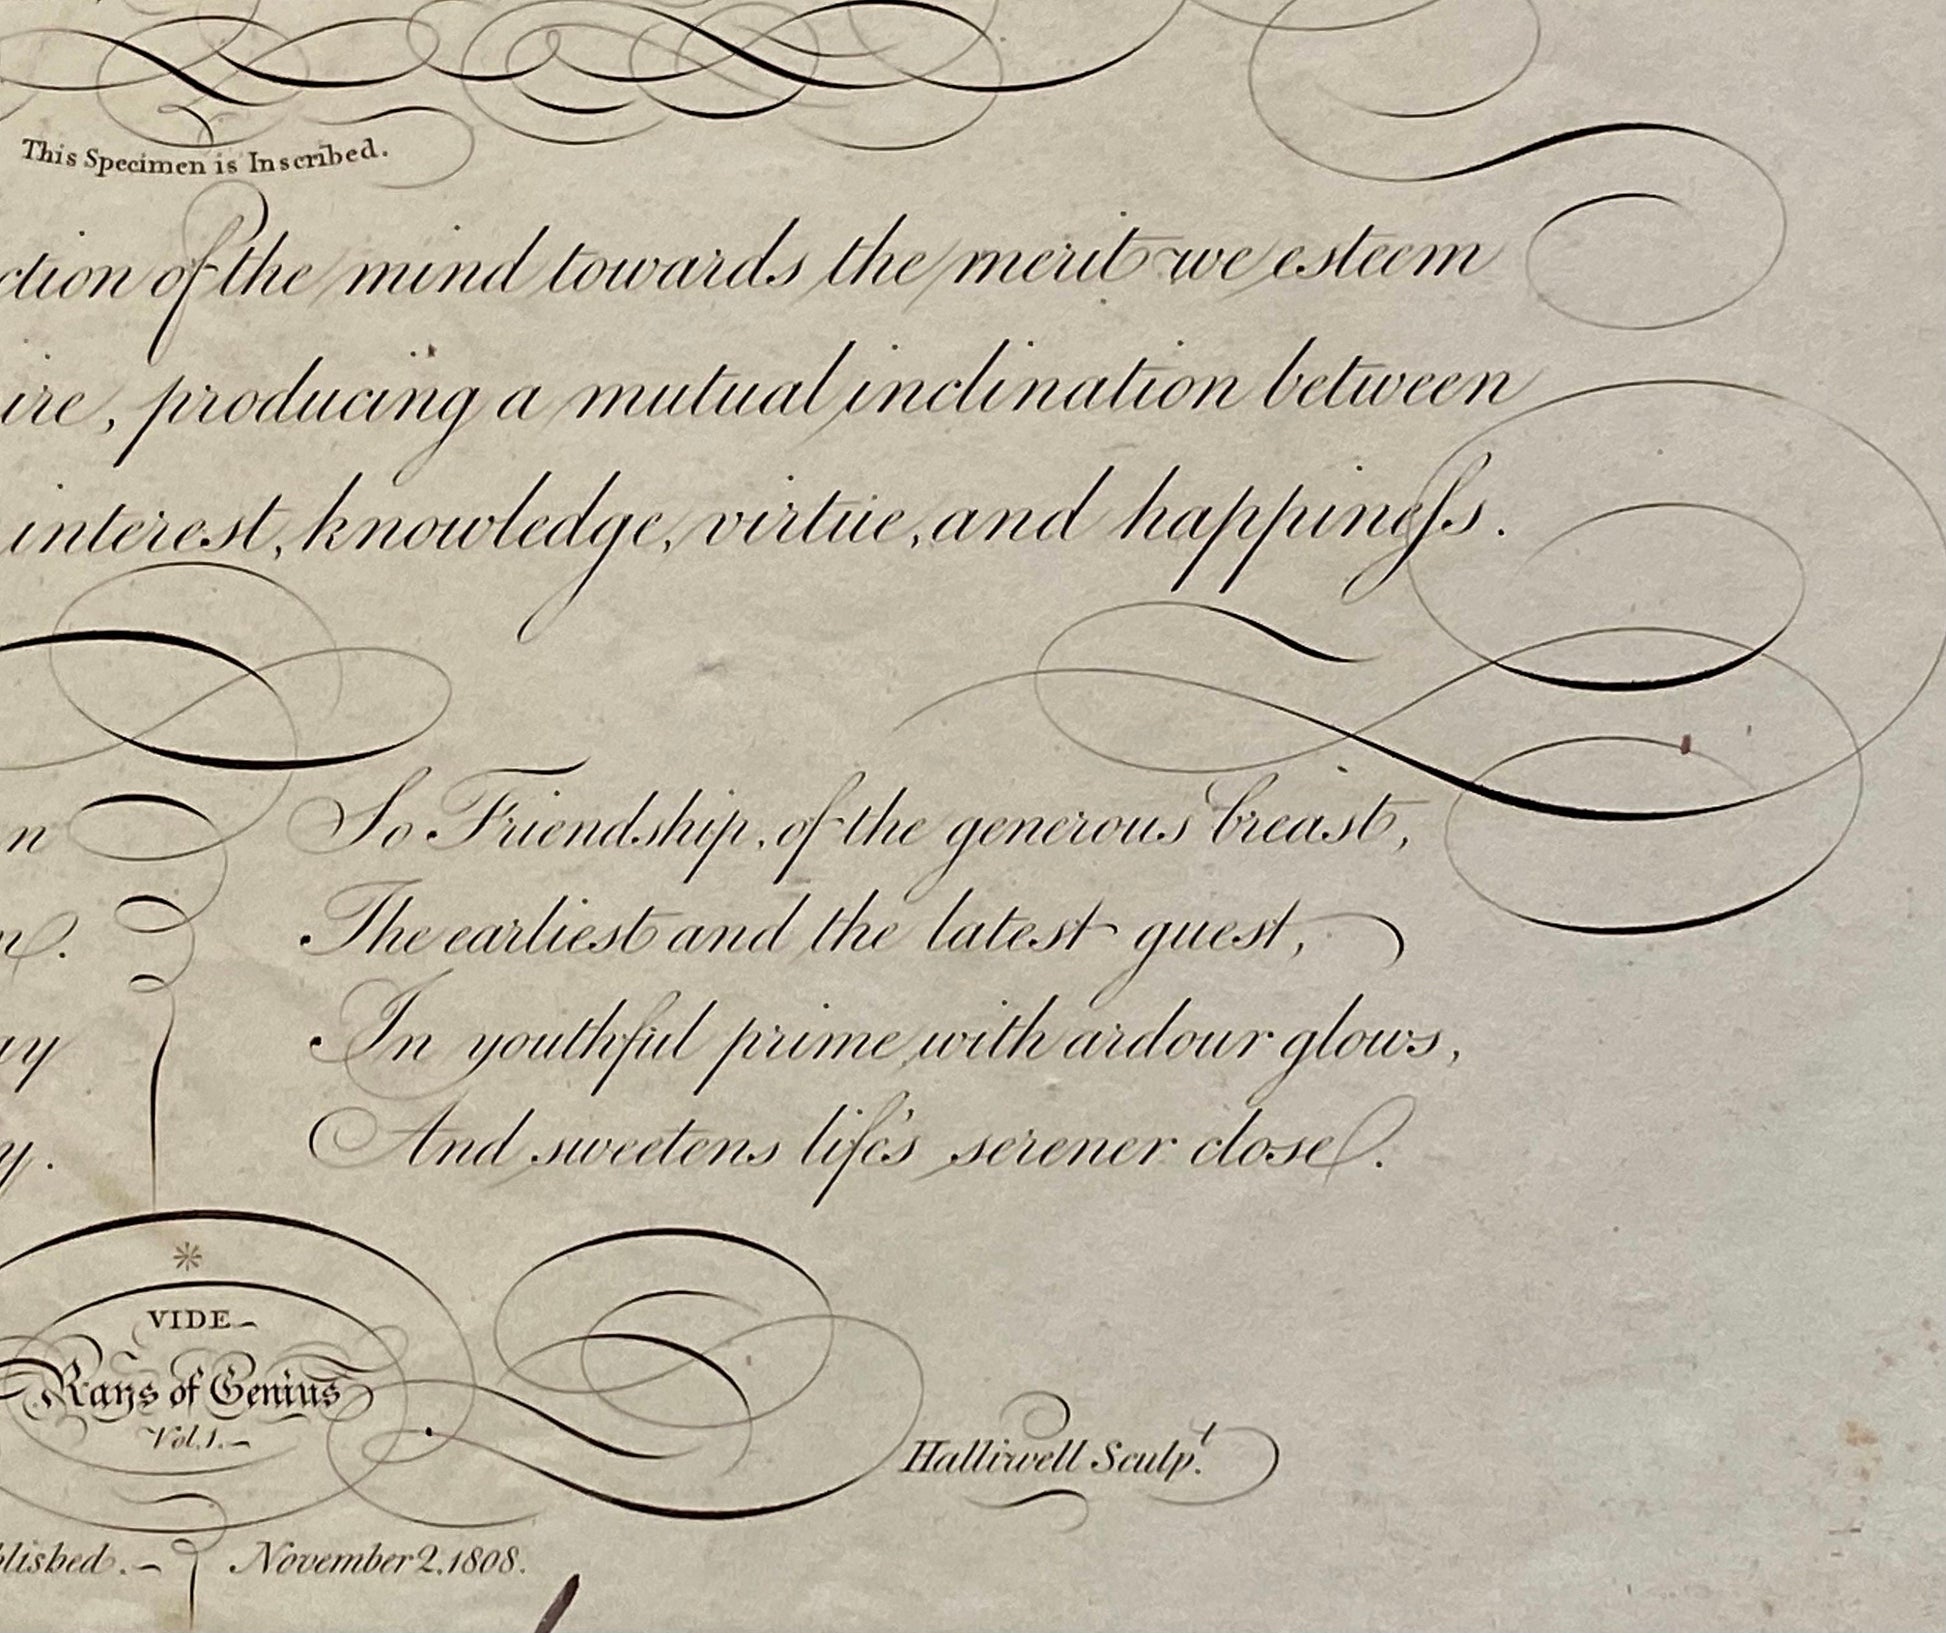 This Specimen is Inscribed.
ction of the mind towards the merit we esteem
ire, producing a mutual inclination between
interest, knowledge, virtue, and happineſs.
n
So Friendship, of the generous breast,
The earliest and the latest guest,
In youthful prime with ardour glows,
ay
And sweetens life's serener close.
y.
*
VIDE
Rays of Genius
Vol. 1.
Halliwell Sculp.t
blished. November 2. 1808.